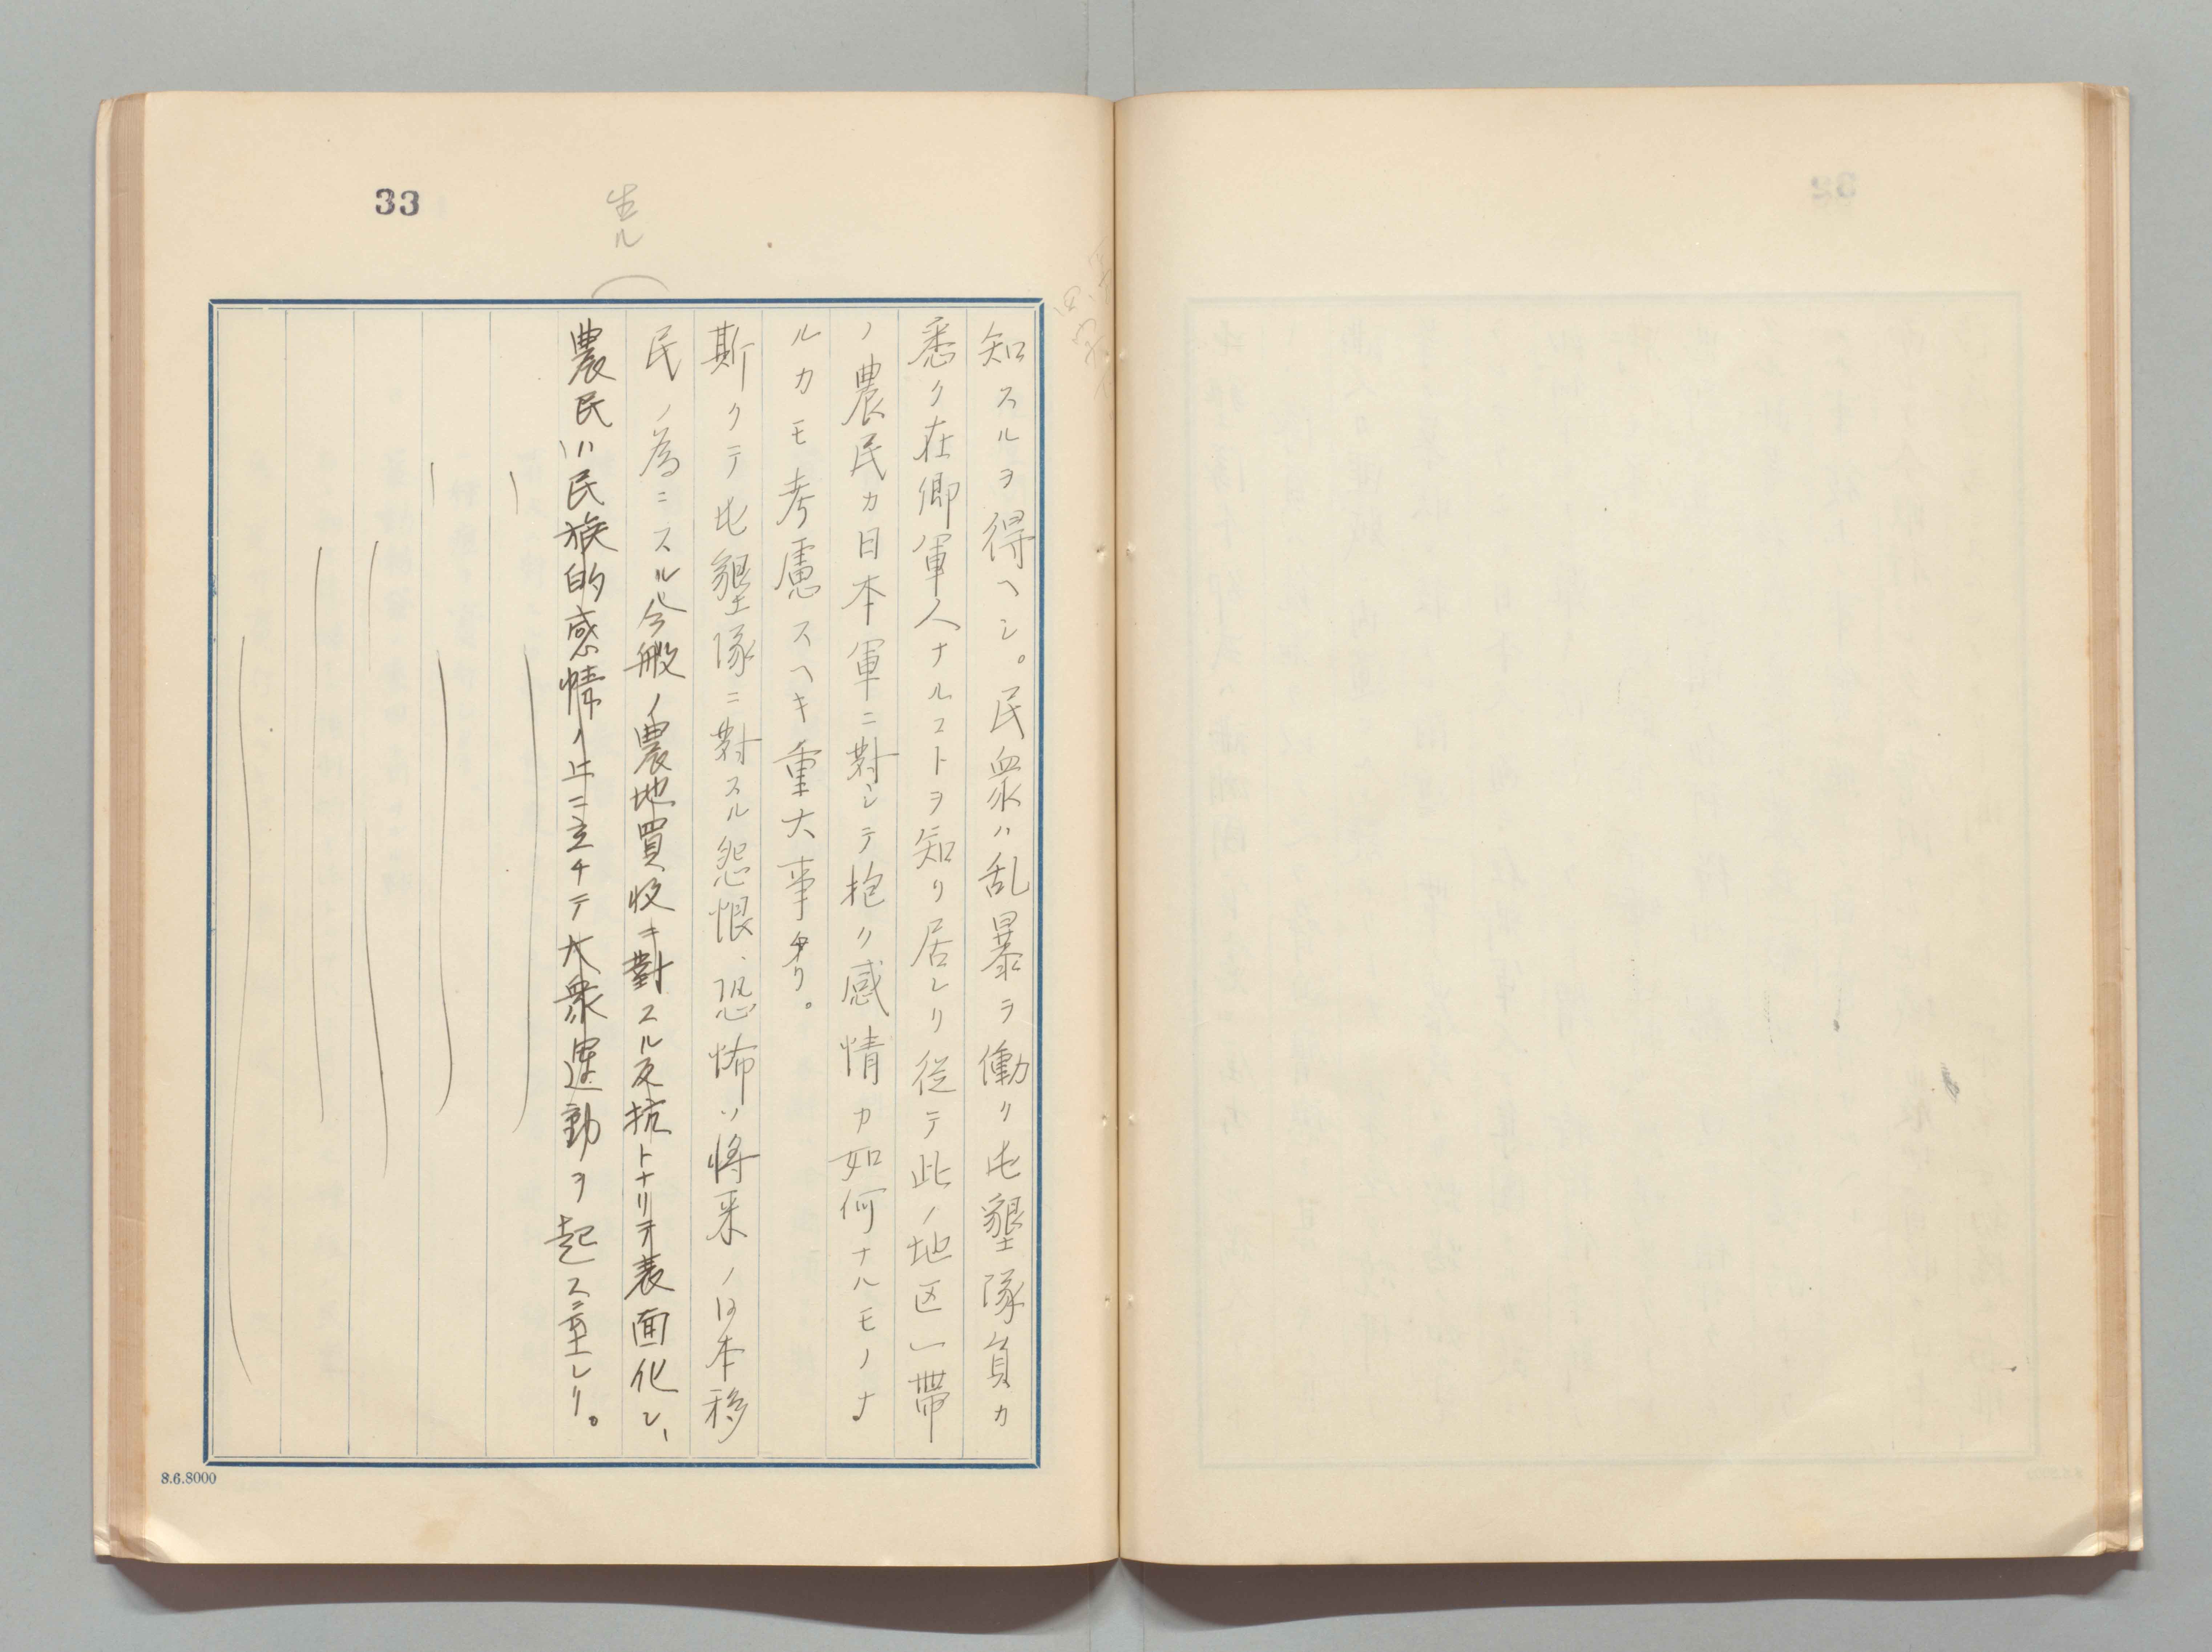 33
生ル
知スルヲ得ヘシ。民衆ハ乱暴ヲ働ク屯墾隊員カ
悉ク在郷軍人ナルコトヲ知リ居レリ従テ此ノ地区一帯
ノ農民カ日本軍ニ對シテ抱ク感情カ如何ナルモノナ
ルカモ考慮スヘキ重大事タリ。
斯クテ屯墾隊ニ對スル怨恨、恐怖ハ将来ノ日本移
民ノ為ニスル今般ノ農地買收ニ對スル反抗トナリテ表面化シ、
農民ハ民族的感情ノ上ニ立チテ大衆運動ヲ起スニ至レリ。
8.6.8000